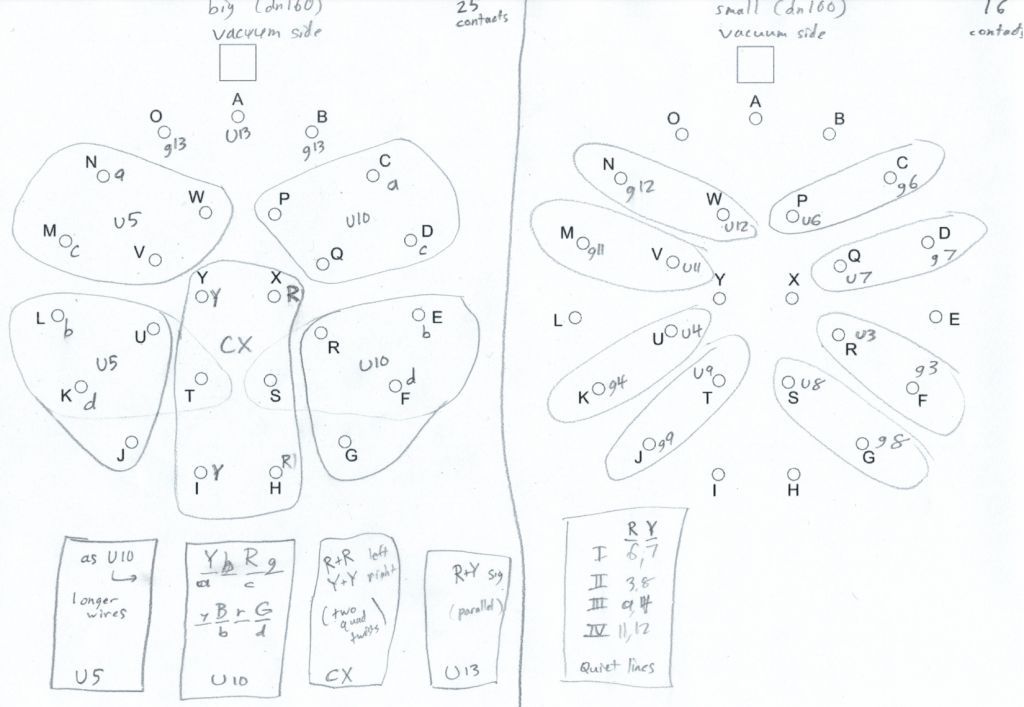 big (dn160)
25
contacts
vacuum side
A
O
B
U13
g13
g13
N
a
C
a
W
P
U5
U10
M
c
D
c
V
Q
Y
X
Y
R
L
b
E
b
U
R
CX
U5
U10
K
d
T
S
d
F
J
G
I
Y
H
R
as U10
longer
wires
U5
Y b R g
a c
y B r G
b d
U10
R+R left
Y+Y right
(two
quad
twists)
CX
R+Y sig
(parallel)
U13
small (dn160)
16
contacts
vacuum side
A
O
B
N
g12
C
g6
W
U12
P
U6
M
g11
D
g7
V
U11
Q
U7
Y
X
L
E
U
U4
U3
R
K
g4
U9
T
U8
S
g3
F
J
g9
g8
G
I
H
R Y
I 6,7
II 3,8
III 9,4
IV 11,12
Quiet lines